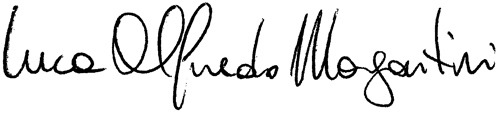 Luca Alfredo Morgantini